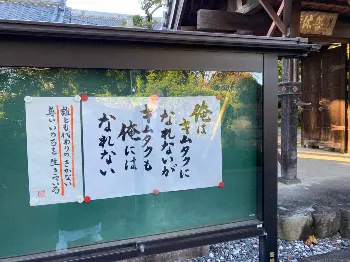 俺は
キムタクに
なれないが
キムタクも
俺には
なれない
誰とも代わりのきかない
尊いいのちを生きている